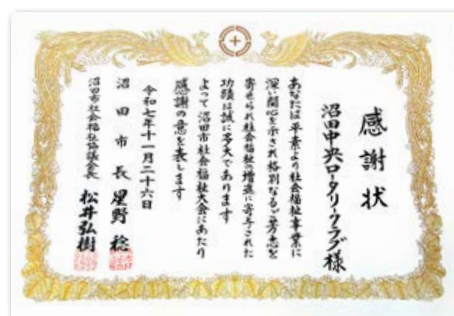 感謝状
沼田中央ロータリークラブ様
あなたは平素より社会福祉事業に
深い関心を示され格別なるご芳志を
寄せられ社会福祉増進に寄与された
功績は誠に多大であります
よって沼田市社会福祉大会にあたり
感謝の意を表します
令和七年十一月二十六日
沼田市長 星野稔
沼田市社会福祉協議会長 松井弘樹